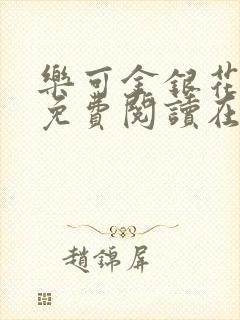 樂可金銀花
免費閱讀在
趙錦屏